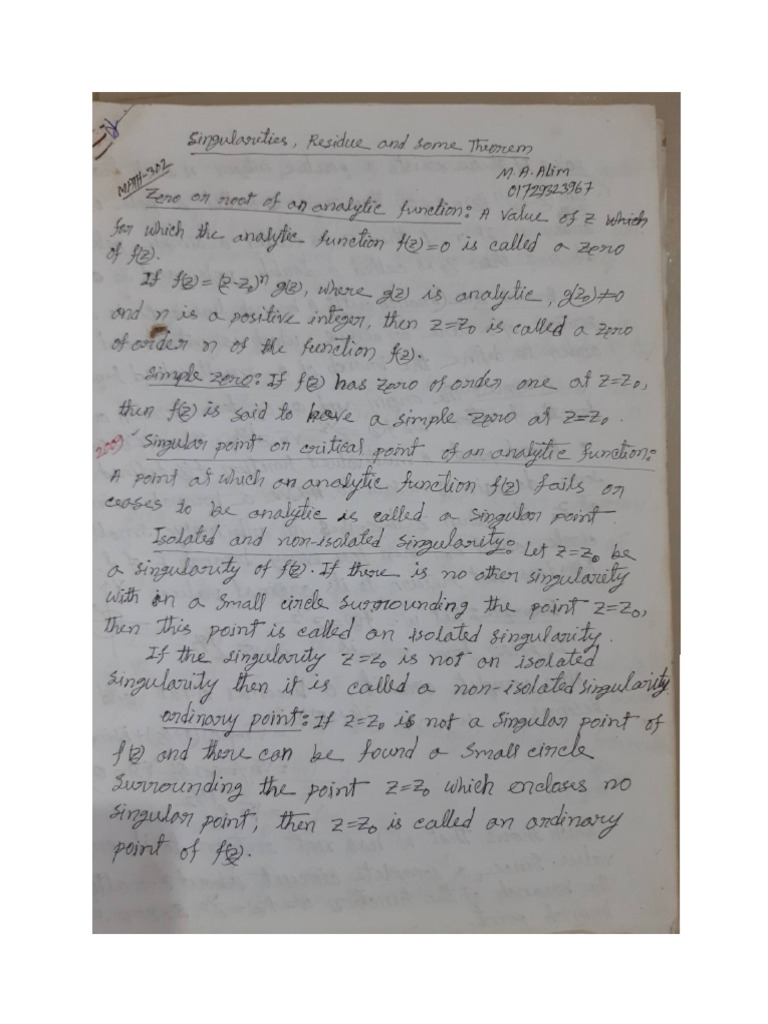 Singularities, Residue and some Theorem
MATH-302
M.A.Alim
01729323967
Zero or root of an analytic function: A value of z which
for which the analytic function f(z)=0 is called a zero
of f(z).
If f(z)=(z-z₀)ⁿ g(z), where g(z) is analytic, g(z₀)≠0
and n is a positive integer, then z=z₀ is called a zero
of order n of the function f(z).
Simple zero: If f(z) has zero of order one at z=z₀,
then f(z) is said to have a simple zero at z=z₀.
2009 Singular point or critical point of an analytic function:
A point at which an analytic function f(z) fails or
ceases to be analytic is called a singular point
Isolated and non-isolated singularity: Let z=z₀ be
a singularity of f(z). If there is no other singularity
with in a small circle surrounding the point z=z₀,
then this point is called an isolated singularity.
If the singularity z=z₀ is not an isolated
singularity then it is called a non-isolated singularity
ordinary point: If z=z₀ is not a singular point of
f(z) and there can be found a small circle
surrounding the point z=z₀ which encloses no
singular point, then z=z₀ is called an ordinary
point of f(z).